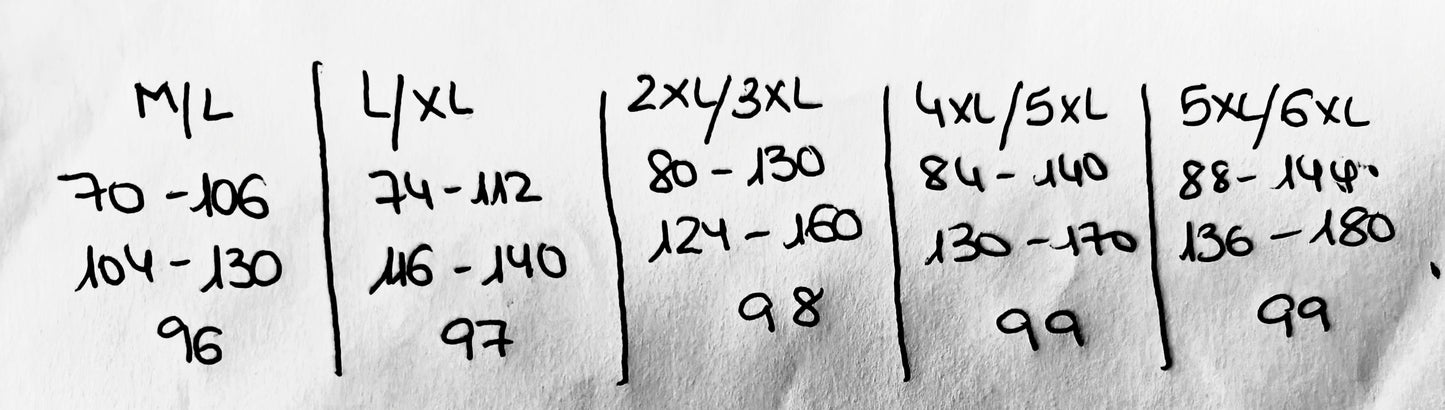 M/L | L/XL | 2XL/3XL | 4XL/5XL | 5XL/6XL
70-106 | 74-112 | 80-130 | 84-140 | 88-144
104-130 | 116-140 | 124-160 | 130-170 | 136-180
96 | 97 | 98 | 99 | 99